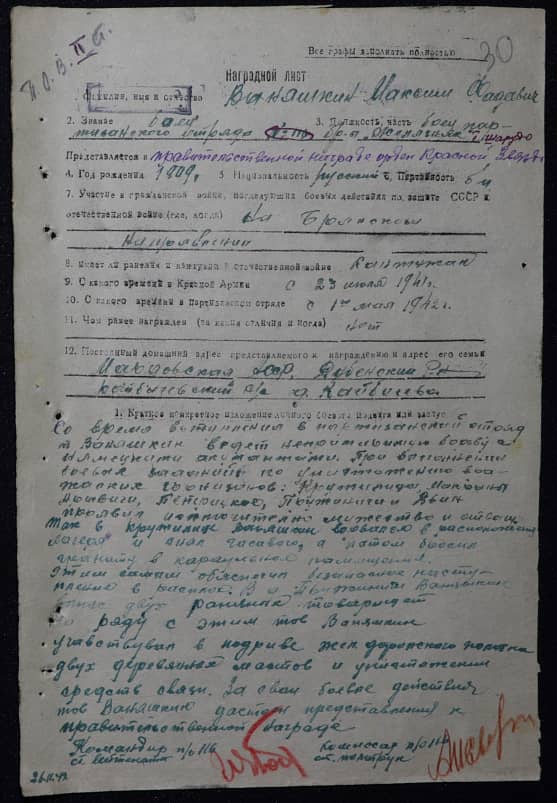 П.О.В. II ст.
Все графы заполнять полностью
30
Наградной лист
1. Фамилия, имя и отчество Ваняшкин Максим
2. Звание боец 3. Должность, часть боец пар
тизанского отряда
Представляется к правительственной награде орден Красной Звезды
4. Год рождения 1909г. 5 Национальность русский 6. Партийность б/п
7. Участие в гражданской войне, последующих боевых действиях по защите СССР и
отечественной войне (где, когда) на Брянском
направлении
8. Имеет ли ранения и контузии в отечественной войне Контужен
9. С какого времени в Красной Армии с 23 июля 1941г.
10. С какого времени в партизанском отряде с 1го мая 1942г.
11. Чем ранее награжден (за какие отличия и когда) нет
12. Постоянный домашний адрес представляемого к награждению и адрес его семьи
Мордовская АССР, Дубенский
с/с
1. Краткое конкретное изложение личного боевого подвига или заслуг
Со времени вступления в партизанский отряд
т Ваняшкин ведет непримиримую борьбу с
немецкими оккупантами. При выполнении
боевых заданий по уничтожению вра-
жеских гарнизонов:
проявил исключительно мужество и отвагу
Так в Ваняшкин ворвался в расположение
лагеря и снял часового, а потом бросил
гранату в караульное помещение
этим самым обеспечил насту-
пление Ваняшкин
вынес двух раненых товарищей
На ряду с этим тов Ваняшкин
участвовал в подрыве жел дорожного полотна
двух деревянных мостов и уничтожении
средств связи. За свои боевые действия
тов Ваняшкин достоин представления к
правительственной награде
Командир п/о 116 Комиссар п/о 116
ст. лейтенант ст. политрук